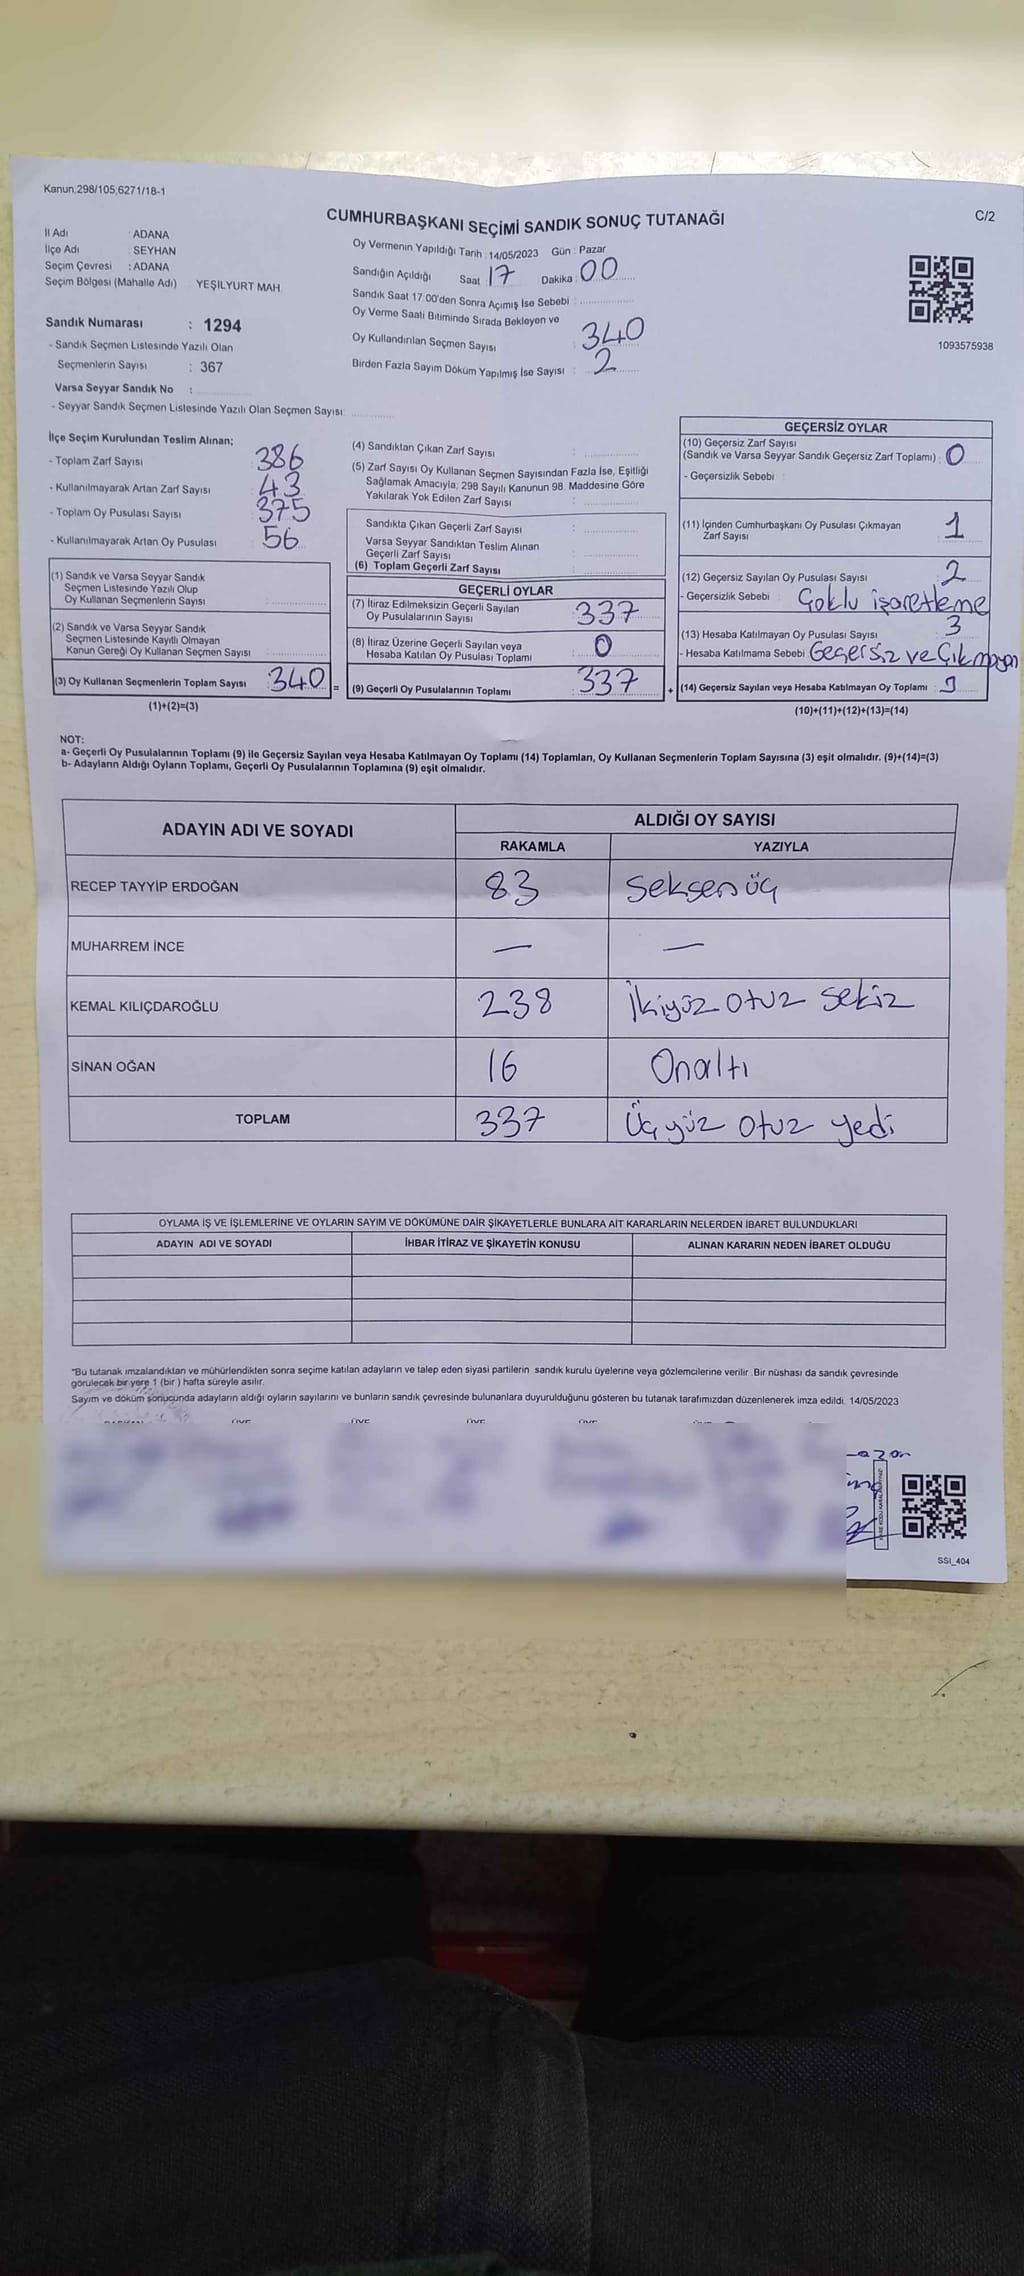 Kanun,298/105,6271/18-1
C/2
CUMHURBAŞKANI SEÇİMİ SANDIK SONUÇ TUTANAĞI
İl Adı : ADANA
İlçe Adı : SEYHAN
Seçim Çevresi : ADANA
Seçim Bölgesi (Mahalle Adı) YEŞİLYURT MAH.
Sandık Numarası : 1294
- Sandık Seçmen Listesinde Yazılı Olan
Seçmenlerin Sayısı : 367
Varsa Seyyar Sandık No :
- Seyyar Sandık Seçmen Listesinde Yazılı Olan Seçmen Sayısı:
Oy Vermenin Yapıldığı Tarih : 14/05/2023 Gün : Pazar
Sandığın Açıldığı Saat : 17 Dakika : 00
Sandık Saat 17.00'den Sonra Açımış İse Sebebi :
Oy Verme Saati Bitiminde Sırada Bekleyen ve
Oy Kullandırılan Seçmen Sayısı : 340
Birden Fazla Sayım Döküm Yapılmış İse Sayısı : 2
1093575938
İlçe Seçim Kurulundan Teslim Alınan;
- Toplam Zarf Sayısı 386
- Kullanılmayarak Artan Zarf Sayısı 43
- Toplam Oy Pusulası Sayısı 375
- Kullanılmayarak Artan Oy Pusulası 56
(1) Sandık ve Varsa Seyyar Sandık
Seçmen Listesinde Yazılı Olup
Oy Kullanan Seçmenlerin Sayısı
(2) Sandık ve Varsa Seyyar Sandık
Seçmen Listesinde Kayıtlı Olmayan
Kanun Gereği Oy Kullanan Seçmen Sayısı
(3) Oy Kullanan Seçmenlerin Toplam Sayısı : 340 =
(1)+(2)=(3)
(4) Sandıktan Çıkan Zarf Sayısı :
(5) Zarf Sayısı Oy Kullanan Seçmen Sayısından Fazla İse, Eşitliği
Sağlamak Amacıyla; 298 Sayılı Kanunun 98. Maddesine Göre
Yakılarak Yok Edilen Zarf Sayısı :
Sandıkta Çıkan Geçerli Zarf Sayısı :
Varsa Seyyar Sandıktan Teslim Alınan
Geçerli Zarf Sayısı :
(6) Toplam Geçerli Zarf Sayısı :
GEÇERLİ OYLAR
(7) İtiraz Edilmeksizin Geçerli Sayılan
Oy Pusulalarının Sayısı : 337
(8) İtiraz Üzerine Geçerli Sayılan veya
Hesaba Katılan Oy Pusulası Toplamı : 0
(9) Geçerli Oy Pusulalarının Toplamı : 337 +
GEÇERSİZ OYLAR
(10) Geçersiz Zarf Sayısı
(Sandık ve Varsa Seyyar Sandık Geçersiz Zarf Toplamı) : 0
- Geçersizlik Sebebi :
(11) İçinden Cumhurbaşkanı Oy Pusulası Çıkmayan
Zarf Sayısı : 1
(12) Geçersiz Sayılan Oy Pusulası Sayısı : 2
- Geçersizlik Sebebi : Çoklu işaretleme
(13) Hesaba Katılmayan Oy Pusulası Sayısı : 3
- Hesaba Katılmama Sebebi : Geçersiz ve Çıkmayan
(14) Geçersiz Sayılan veya Hesaba Katılmayan Oy Toplamı :
(10)+(11)+(12)+(13)=(14)
NOT:
a- Geçerli Oy Pusulalarının Toplamı (9) ile Geçersiz Sayılan veya Hesaba Katılmayan Oy Toplamı (14) Toplamları, Oy Kullanan Seçmenlerin Toplam Sayısına (3) eşit olmalıdır. (9)+(14)=(3)
b- Adayların Aldığı Oyların Toplamı, Geçerli Oy Pusulalarının Toplamına (9) eşit olmalıdır.
ADAYIN ADI VE SOYADI ALDIĞI OY SAYISI
RAKAMLA YAZIYLA
RECEP TAYYİP ERDOĞAN 83 Seksen üç
MUHARREM İNCE — —
KEMAL KILIÇDAROĞLU 238 İkiyüz otuz sekiz
SİNAN OĞAN 16 Onaltı
TOPLAM 337 Üçyüz otuz yedi
OYLAMA İŞ VE İŞLEMLERİNE VE OYLARIN SAYIM VE DÖKÜMÜNE DAİR ŞİKAYETLERLE BUNLARA AİT KARARLARIN NELERDEN İBARET BULUNDUKLARI
ADAYIN ADI VE SOYADI İHBAR İTİRAZ VE ŞİKAYETİN KONUSU ALINAN KARARIN NEDEN İBARET OLDUĞU
"Bu tutanak imzalandıktan ve mühürlendikten sonra seçime katılan adayların ve talep eden siyasi partilerin sandık kurulu üyelerine veya gözlemcilerine verilir. Bir nüshası da sandık çevresinde
görülecek bir yere 1 (bir ) hafta süreyle asılır.
Sayım ve döküm sonucunda adayların aldığı oyların sayılarını ve bunların sandık çevresinde bulunanlara duyurulduğunu gösteren bu tutanak tarafımızdan düzenlenerek imza edildi. 14/05/2023
SSI_404